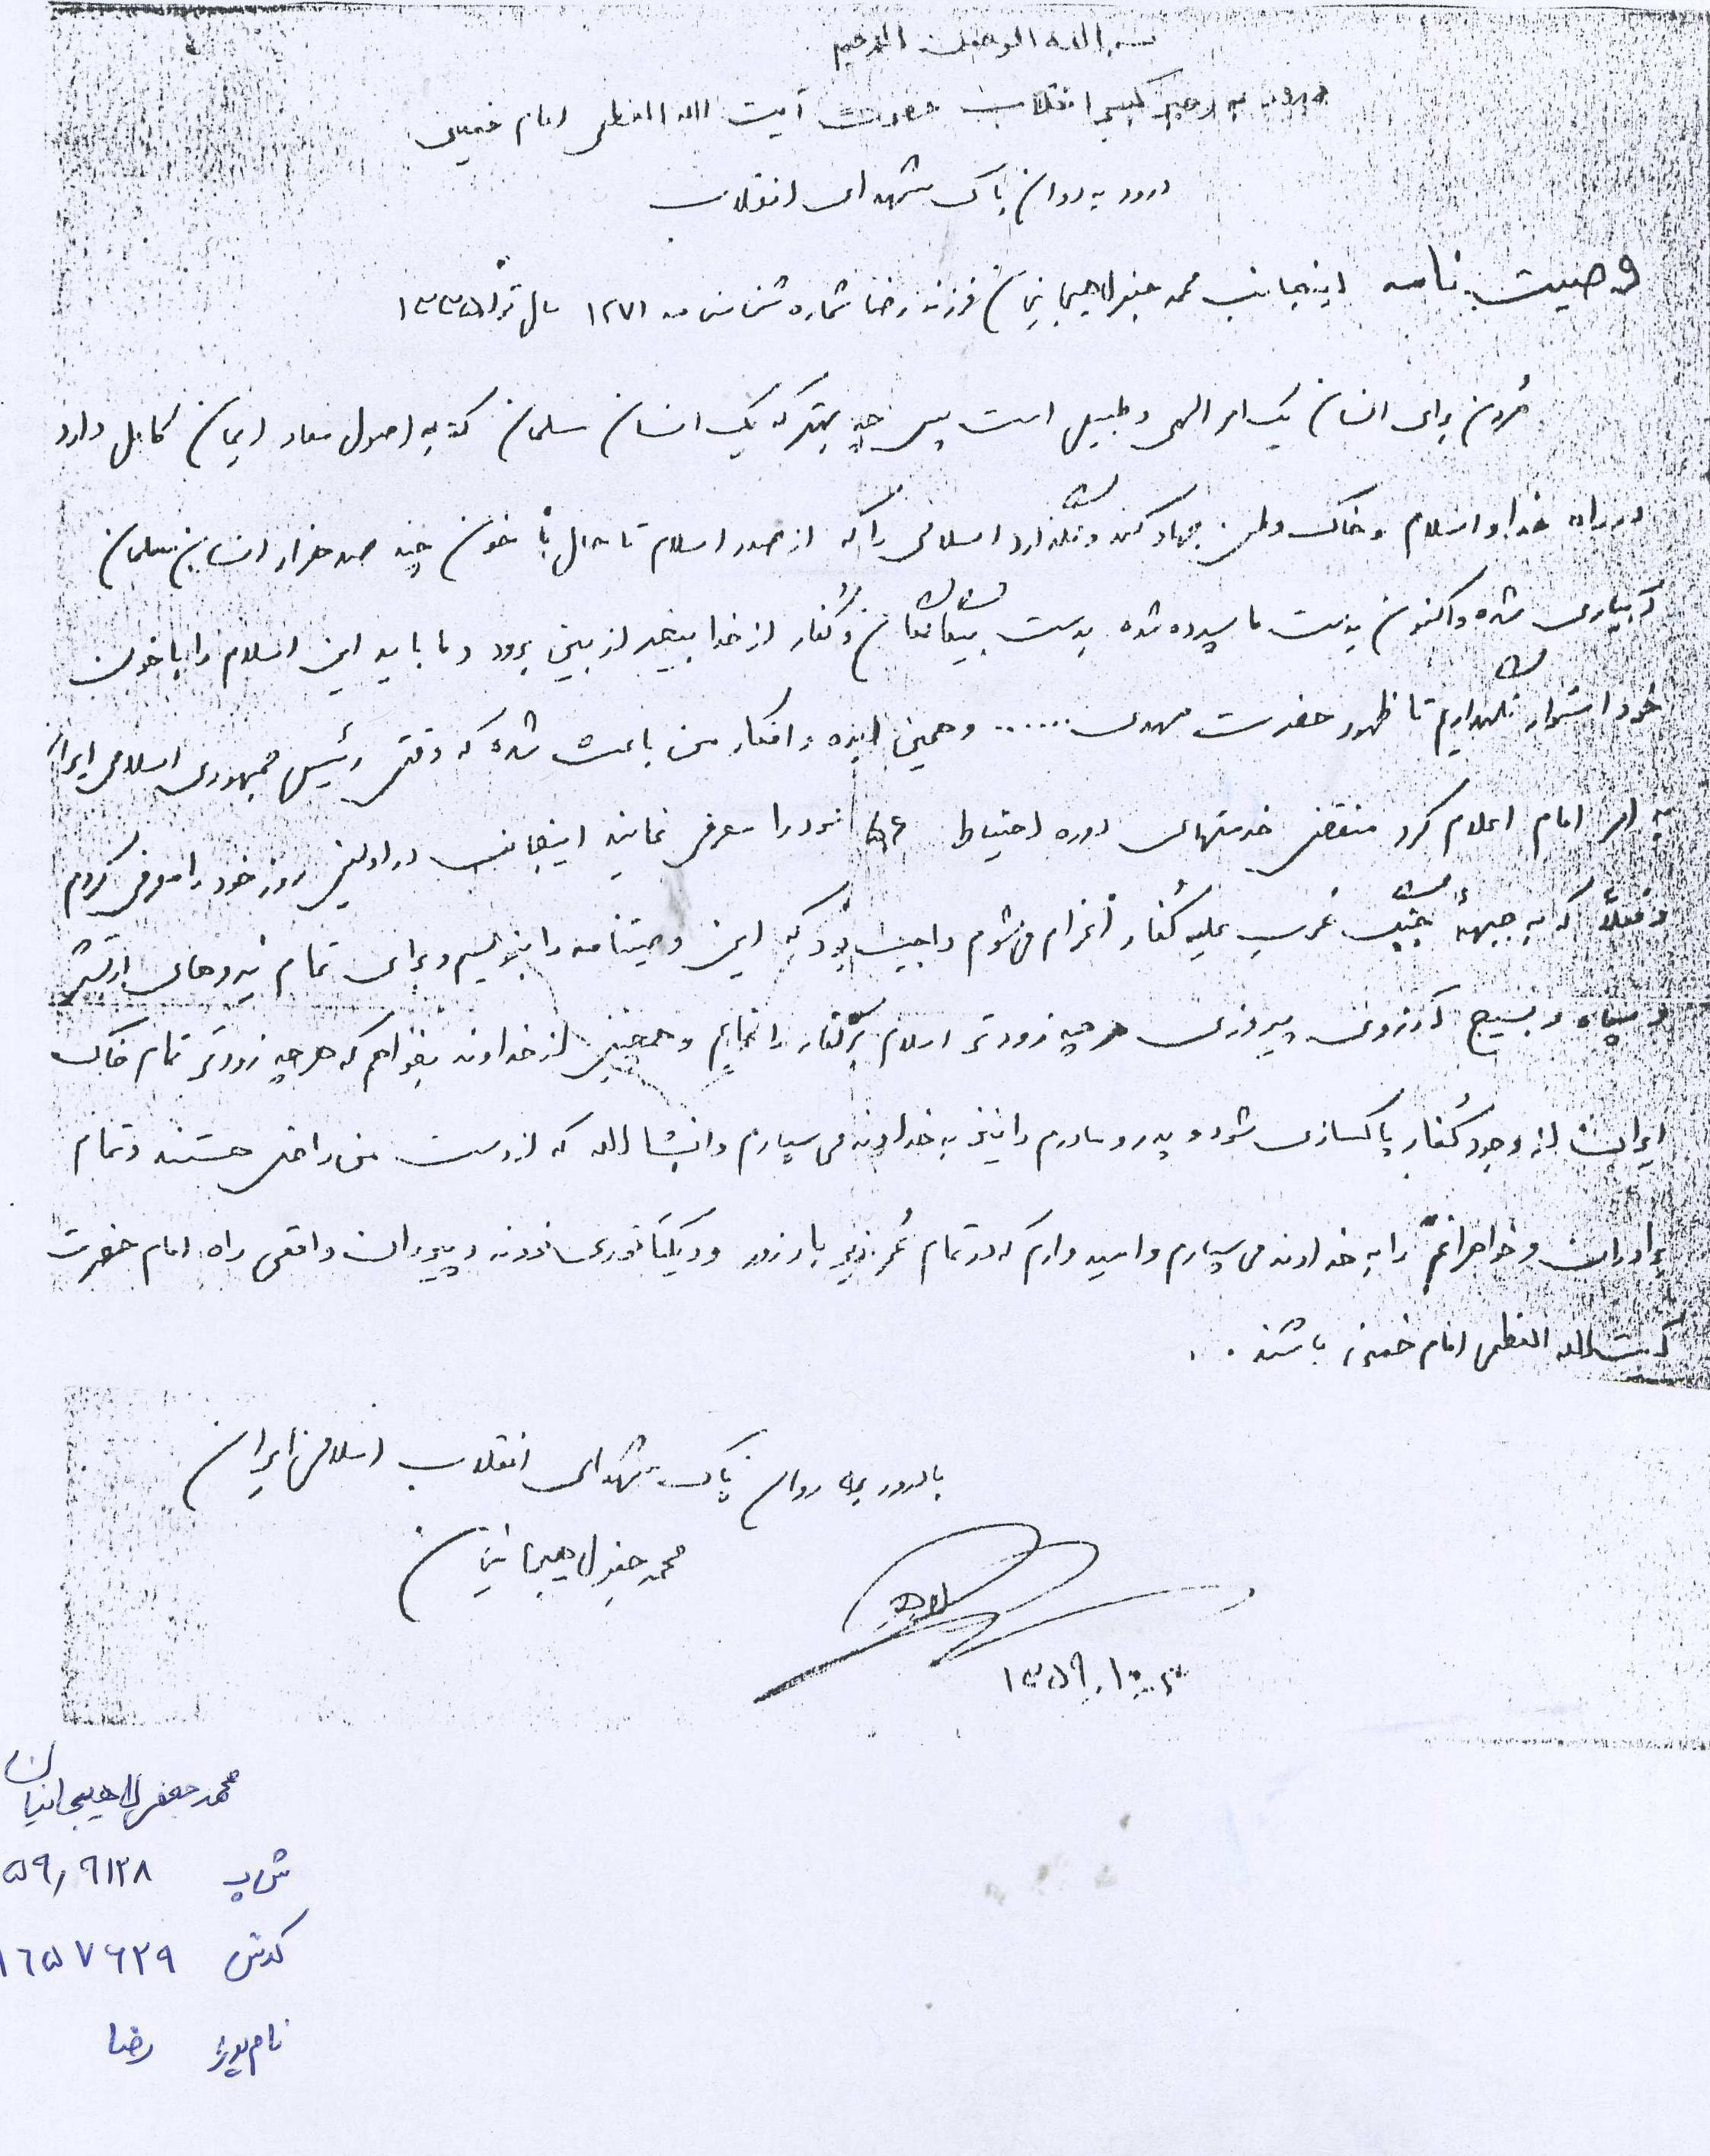 بسم الله الرحمن الرحیم
درود به رهبر کبیر انقلاب حضرت آیت الله العظمی امام خمینی
درود به روان پاک شهدای انقلاب
وصیت نامه اینجانب محمد جعفر لاهیجانیان فرزند رضا شماره شناسنامه ۱۲۷۱ سال تولد ۱۳۳۵
مُردن برای انسان یک امر الهی و طبیعی است پس چه بهتر که یک انسان مسلمان که به اصول معاد ایمان کامل دارد
در راه خدا و اسلام و خاک وطن جهاد کند و نگذارد اسلامی را که از صدر اسلام تا حال با خون چند صد هزار انسان مسلمان
آبیاری شده و اکنون بدست ما سپرده شده بدست بیگانگان و کُفار از خدا بیخبر از بین برود و ما باید این اسلام را با خون
خود استوار نگهداریم تا ظهور حضرت مهدی ...... و همین ایده و افکار من باعث شده که وقتی رئیس جمهوری اسلامی ایران
به امر امام اعلام کرد منقضی خدمتهای دوره احتیاط ۵۶ خود را معرفی نمایند اینجانب در اولین روز خود را معرفی کردم
و فعلاً که به جبههٔ جنگ غرب علیه کُفار اعزام می‌شوم واجب بود که این وصیتنامه را بنویسم و برای تمام نیروهای ارتش
و سپاه و بسیج آرزوی پیروزی هر چه زودتر اسلام بر کفار را نمایم و همچنین از خداوند بخواهم که هر چه زودتر تمام خاک
ایران از وجود کُفار پاکسازی شود و پدر و مادرم را نیز به خداوند می سپارم و انشاالله که از دست من راضی هستند و تمام
برادران و خواهرانم را به خداوند می سپارم و امیدوارم که در تمام عُمر زیر بار زور و دیکتاتوری نروند و پیروان واقعی راه امام حضرت
آیت الله العظمی امام خمینی باشند .
با درود به روان پاک شهدای انقلاب اسلامی ایران
محمد جعفر لاهیجانیان
۱۳۵۹
محمد جعفر لاهیجانیان
ش پ ۵۹/۹۱۲۸
کدش ۱۶۵۷۶۲۹
نام پدر رضا